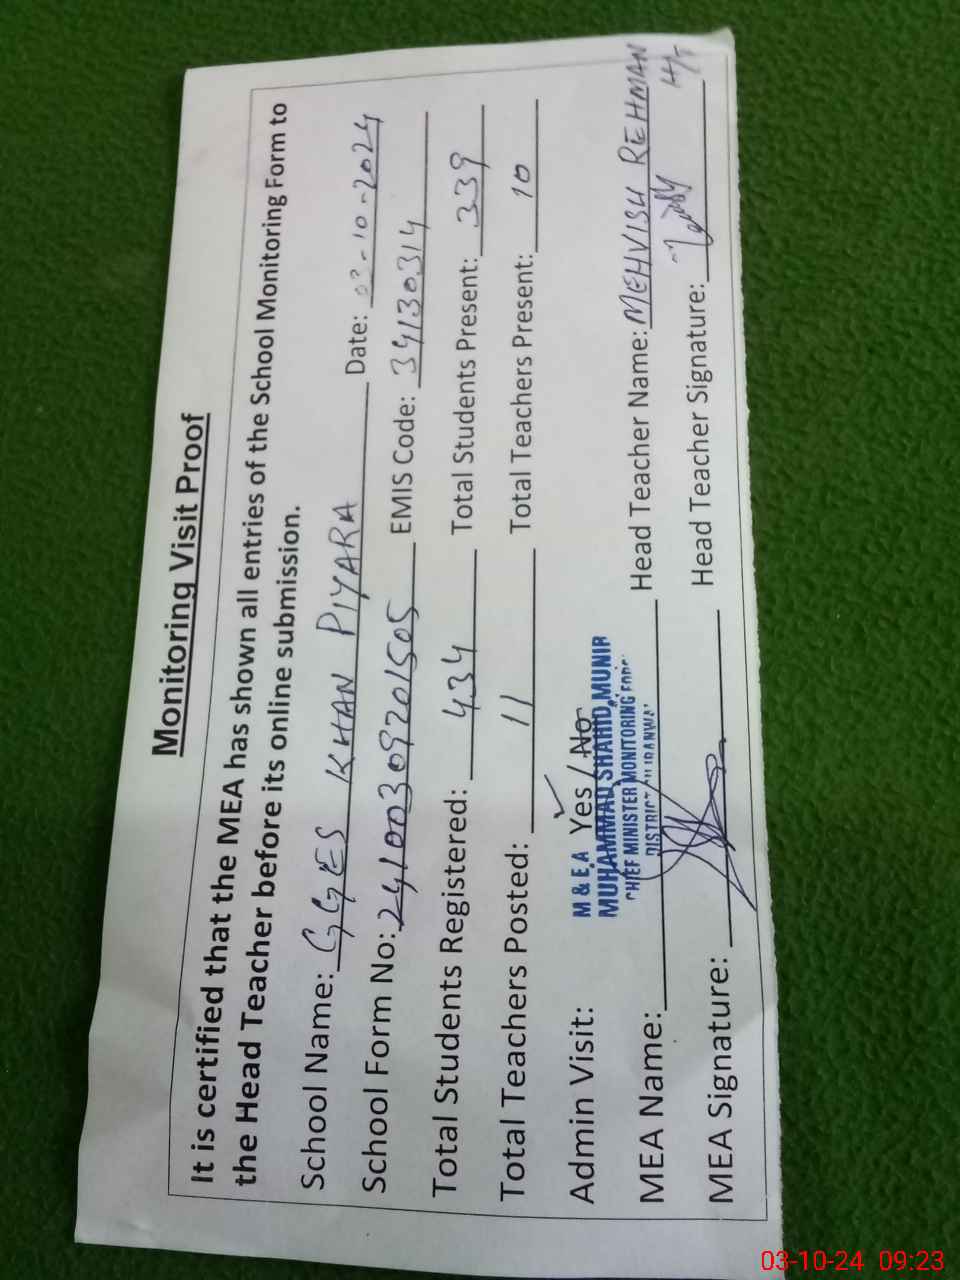 Monitoring Visit Proof
It is certified that the MEA has shown all entries of the School Monitoring Form to
the Head Teacher before its online submission.
School Name: GGES KHAN PIYARA Date: 03-10-2024
School Form No: 24100309201505 EMIS Code: 34130314
Total Students Registered: 434 Total Students Present: 339
Total Teachers Posted: 11 Total Teachers Present: 10
Admin Visit: Yes / No
M & E.A
MUHAMMAD SHAHID MUNIR
CHIEF MINISTER MONITORING
DISTRICT
MEA Name: Head Teacher Name: MEHVISH REHMAN
H/T
MEA Signature: Head Teacher Signature:
03-10-24 09:23